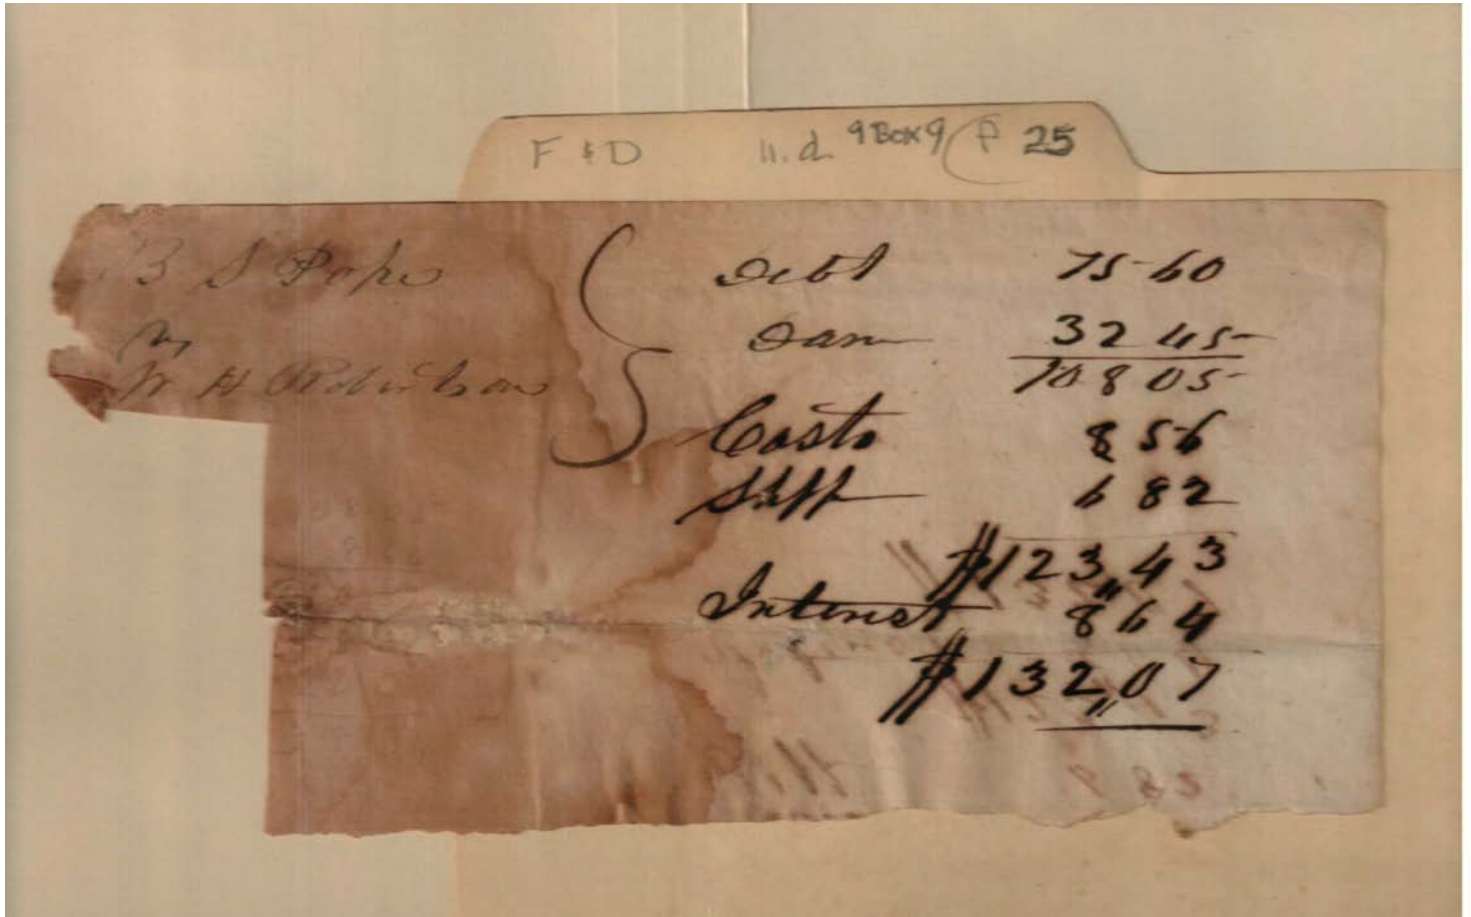 F & D n.d. 9 Box 9 P 25
B S Pope
vs
W H Robertson
Debt 75 60
Dam 32 45
108 05
Costs 8 56
Shff 6 82
$123,43
Interest 8 64
$132,07